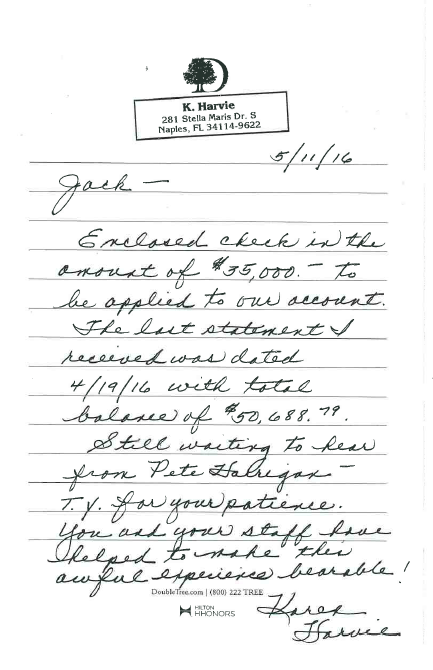 D
K. Harvie
281 Stella Maris Dr. S
Naples, FL 34114-9622
5/11/16
Jack —
Enclosed check in the
amount of $35,000.— to
be applied to our account.
The last statement I
received was dated
4/19/16 with total
balance of $50,688.79.
Still waiting to hear
from Pete —
T.Y. for your patience.
You and your staff have
helped to make this
awful experience bearable!
DoubleTree.com | (800) 222 TREE
HILTON
HHONORS
Karen
Harvie